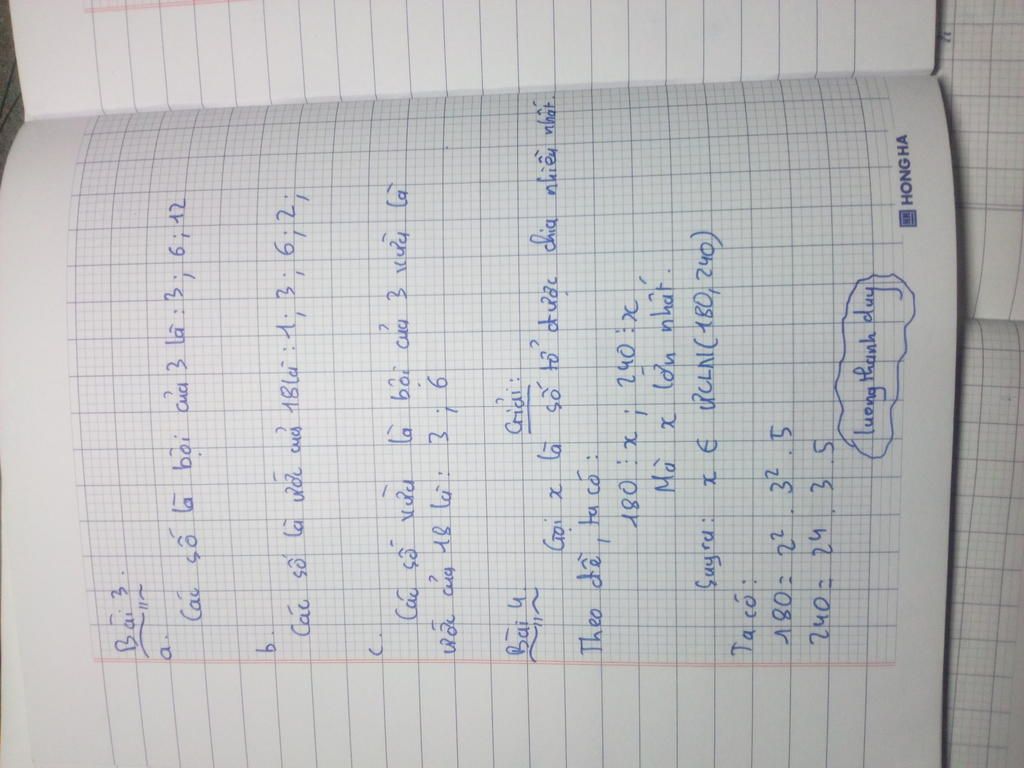 Bài 3.
a.
Các số là bội của 3 là : 3 ; 6 ; 12
b.
Các số là ước của 18 là : 1 ; 3 ; 6 ; 2 ;
c.
Các số vừa là bội của 3 vừa là
ước của 18 là : 3 ; 6
Bài 4
Giải :
Gọi x là số tổ được chia nhiều nhất.
Theo đề, ta có :
180 ⋮ x ; 240 ⋮ x
Mà x lớn nhất.
Suy ra : x ∈ ƯCLN(180, 240)
Ta có :
180 = 2² . 3² . 5
240 = 24 . 3 . 5
luongthanh duy
HONG HA